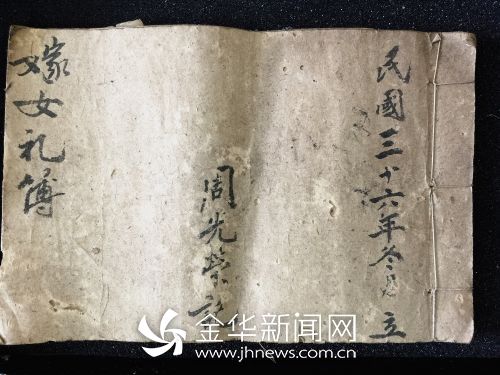 民國三十六年冬月立
周先榮記
嫁女礼簿
金华新闻网
www.jhnews.com.cn